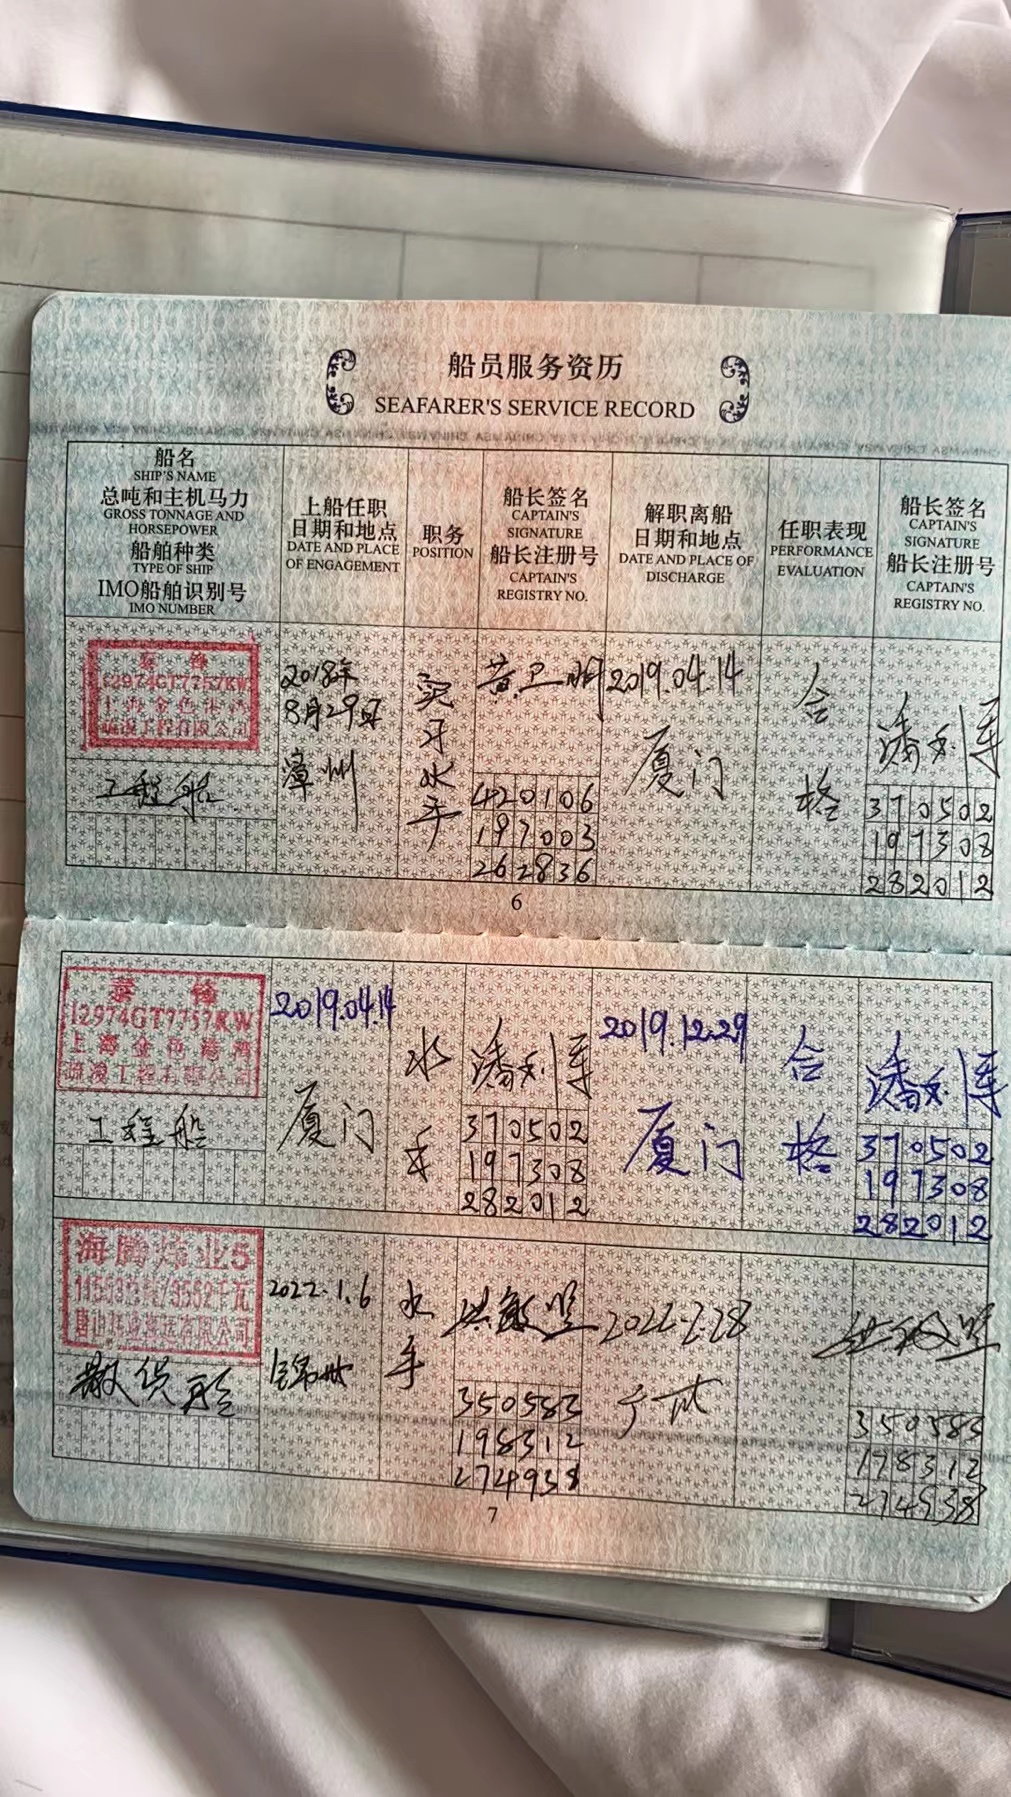 船员服务资历
SEAFARER'S SERVICE RECORD
船名
SHIP'S NAME
总吨和主机马力
GROSS TONNAGE AND
HORSEPOWER
船舶种类
TYPE OF SHIP
IMO船舶识别号
IMO NUMBER
上船任职
日期和地点
DATE AND PLACE
OF ENGAGEMENT
职务
POSITION
船长签名
CAPTAIN'S
SIGNATURE
船长注册号
CAPTAIN'S
REGISTRY NO.
解职离船
日期和地点
DATE AND PLACE OF
DISCHARGE
任职表现
PERFORMANCE
EVALUATION
船长签名
CAPTAIN'S
SIGNATURE
船长注册号
CAPTAIN'S
REGISTRY NO.
12974GT7757KW
上海金色港湾
疏浚工程有限公司
工程船
2018年
8月29日
漳州
实习水手
黄卫明
420106
197003
262836
2019.04.14
厦门
合格
潘利军
370502
197308
282012
6
12974GT7757KW
上海金色港湾
疏浚工程有限公司
工程船
2019.04.14
厦门
水手
潘利军
370502
197308
282012
2019.12.29
厦门
合格
潘利军
370502
197308
282012
海腾炜业5
散货船
2022.1.6
锦州
水手
洪敏坚
350583
198312
274938
2022.2.28
350583
198312
274938
7